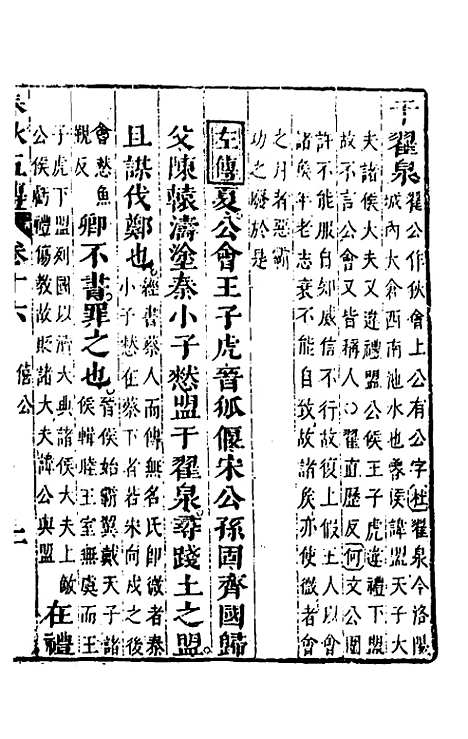 于翟泉 翟公作狄會上公有公字杜翟泉今洛陽
城內大倉西南池水也魯侯諱盟天子大
夫諸侯大夫又違禮盟公侯王子虎違禮下盟
故不言公會又皆稱人○翟直歷反何文公圍
許不能服自知威信不行故復上假王人以會
諸侯年老志衰不能自致故諸侯亦使微者會
之月者惡霸
功之廢於是
左傳夏公會王子虎晉狐偃宋公孫固齊國歸
父陳轅濤塗秦小子憖盟于翟泉尋踐土之盟
且謀伐鄭也 經書蔡人而傳無名氏即微者秦
小子憖在蔡下者若宋向戌之後
會憖魚
覲反
卿不書罪之也 晉侯始霸翼戴天子諸
侯輯睦王室無虞而王
子虎下盟列國以瀆大典諸侯大夫上敵
公侯虧禮傷教故貶諸大夫諱公與盟
在禮
春秋五傳 卷十六 僖公 上